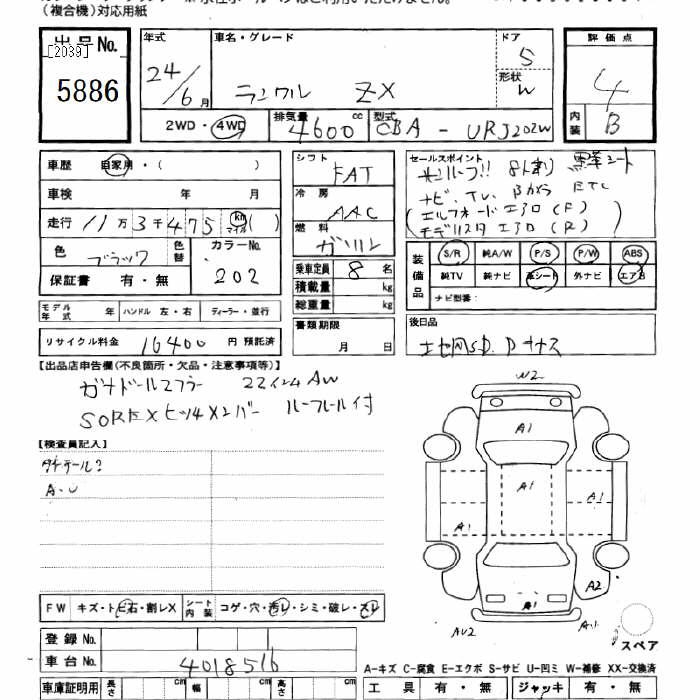 (複合機)対応用紙
出品No.
[2039]
5886
年式 車名・グレード ドア 評価点
24/6月 ランクル ZX 5 4
形状 W
2WD・4WD 排気量 4600cc 型式 CBA - URJ202W 内装 B
車歴 自家用・( )
車検 年 月
走行 11万3千475 km マイル ( )
色 ブラック 色替 カラーNo. 202
保証書 有・無
シフト FAT
冷房 AAC
燃料 ガソリン
乗車定員 8 名
積載量 kg
総重量 kg
書類期限
月 日
セールスポイント
サンルーフ!! 8人乗り 黒革シート
ナビ、TV、Bカメラ ETC
(エルフォードエアロ(F))
(モデリスタエアロ(R))
装備品 S/R 純A/W P/S P/W ABS
純TV 純ナビ 革シート 外ナビ エアB
ナビ型番:
モデル年式 年 ハンドル 左・右 ディーラー・並行
リサイクル料金 16400 円 預託済
後日品
【出品店申告欄(不良箇所・欠品・注意事項等)】
ガナドールマフラー 22インチAW
ルーフレール付
【検査員記入】
A・U
W2
A1
A1
A1
A1
A2
A1
AU2
FW キズ・トビ石・割レX シート内装 コゲ・穴・汚レ・シミ・破レ・スレ
登録No.
車台No. 4018516
スペア
A-キズ C-腐食 E-エクボ S-サビ U-凹ミ W-補修 XX-交換済
車庫証明用 長さ cm 幅 cm 高さ cm 工具 有・無 ジャッキ 有・無